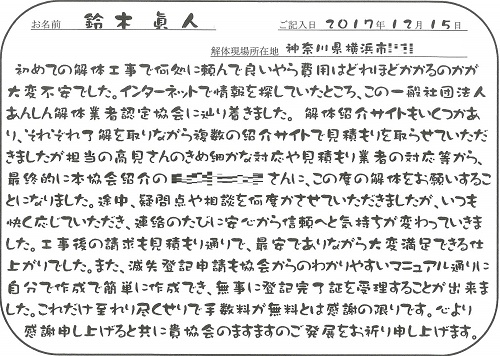 お名前 鈴木眞人 ご記入日 2017年12月15日
解体現場所在地 神奈川県横浜市
初めての解体工事で何処に頼んで良いやら費用はどれほどかかるのかが
大変不安でした。インターネットで情報を探していたところ、この一般社団法人
あんしん解体業者認定協会に辿り着きました。 解体紹介サイトもいくつかあ
り、それぞれ了解を取りながら複数の紹介サイトで見積もりを取らせていただ
きましたが担当の高見さんのきめ細かな対応や見積もり業者の対応等から、
最終的に本協会紹介の さんに、この度の解体をお願いするこ
とになりました。途中、疑問点や相談を何度かさせていただきましたが、いつも
快く応じていただき、連絡のたびに安心から信頼へと気持ちが変わっていきま
した。工事後の請求も見積もり通りで、最安でありながら大変満足できる仕
上がりでした。また、滅失登記申請も協会からのわかりやすいマニュアル通りに
自分で作成で簡単に作成でき、無事に登記完了証を受理することが出来ま
した。これだけ至れり尽くせりで手数料が無料とは感謝の限りです。心より
感謝申し上げると共に貴協会のますますのご発展をお祈り申し上げます。